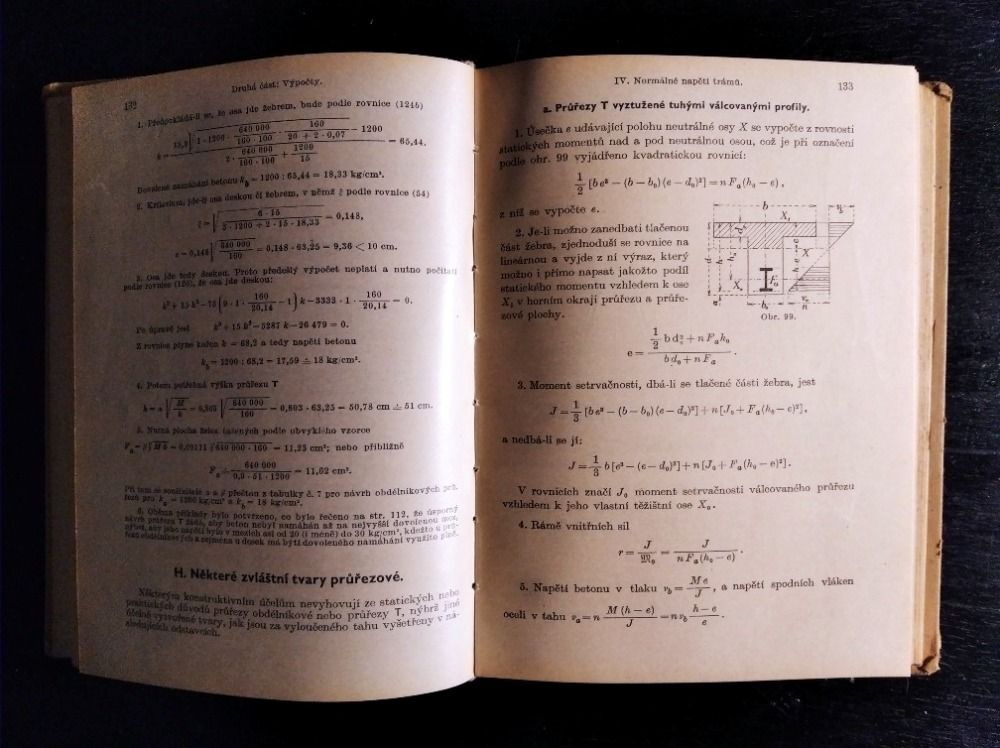 132
Druhá část: Výpočty.
1. Předpokládá-li se, že osa jde žebrem, bude podle rovnice (124b)
= 65,44.
Dovolené namáhání betonu k_b = 1200 : 65,44 = 18,33 kg/cm².
2. Kriterium, jde-li osa deskou či žebrem, v němž ξ podle rovnice (54)
ξ = √(6 · 15 / (3 · 1200 + 2 · 15 · 18,33)) = 0,148,
e = 0,148 √(640 000 / 160) = 0,148 · 63,25 = 9,36 < 10 cm.
3. Osa jde tedy deskou. Proto předešlý výpočet neplatí a nutno počítati
podle rovnice (126), že osa jde deskou:
k³ + 15 k² − 15 (9 · 1 · 160/20,14 − 1) k − 3333 · 1 · 160/20,14 = 0.
Po úpravě jest k³ + 15 k² − 5287 k − 26 479 = 0.
Z rovnice plyne kořen k = 68,2 a tedy napětí betonu
k_b = 1200 : 68,2 = 17,59 ≐ 18 kg/cm².
4. Potom potřebná výška průřezu T
h = α √(M/b) = 0,803 √(640 000 / 160) = 0,803 · 63,25 = 50,78 cm ≐ 51 cm.
5. Nutná plocha želez tažených podle obvyklého vzorce
F_a = β √(M b) = 0,00111 √(640 000 · 160) = 11,25 cm²; nebo přibližně
F_a ≐ 640 000 / (0,9 · 51 · 1200) = 11,62 cm².
Při tom se součinitele α a β přečtou z tabulky č. 7 pro návrh obdélníkových prů-
řezů pro k_a = 1200 kg/cm² a k_b = 18 kg/cm².
6. Oběma příklady bylo potvrzeno, co bylo řečeno na str. 112, že úsporný
návrh průřezu T žádá, aby beton nebyl namáhán až na nejvyšší dovolenou mez,
nýbrž, aby jeho napětí bylo v mezích asi od 20 (i méně) do 30 kg/cm², kdežto u prů-
řezů obdélníkových a zejména u desek má býti dovoleného namáhání využito plně.
H. Některé zvláštní tvary průřezové.
Některým konstruktivním účelům nevyhovují ze statických nebo
praktických důvodů průřezy obdélníkové nebo průřezy T, nýbrž jiné
účelně vytvořené tvary, jak jsou za vyloučeného tahu vyšetřeny v ná-
sledujících odstavcích.
IV. Normálné napětí trámů.
133
a. Průřezy T vyztužené tuhými válcovanými profily.
1. Úsečka e udávající polohu neutrálné osy X se vypočte z rovnosti
statických momentů nad a pod neutrálnou osou, což je při označení
podle obr. 99 vyjádřeno kvadratickou rovnicí:
1/2 [b e² − (b − b₀) (e − d₀)²] = n F_a (h₀ − e),
z níž se vypočte e.
2. Je-li možno zanedbati tlačenou
část žebra, zjednoduší se rovnice na
lineárnou a vyjde z ní výraz, který
možno i přímo napsat jakožto podíl
statického momentu vzhledem k ose
X₁ v horním okraji průřezu a průře-
zové plochy.
b
X₁
X
F_a
X_a
Obr. 99.
e = (1/2 b d₀² + n F_a h₀) / (b d₀ + n F_a).
3. Moment setrvačnosti, dbá-li se tlačené části žebra, jest
J = 1/3 [b e³ − (b − b₀) (e − d₀)³] + n [J₀ + F_a (h₀ − e)²],
a nedbá-li se jí:
J = 1/3 b [e³ − (e − d₀)³] + n [J₀ + F_a (h₀ − e)²].
V rovnicích značí J₀ moment setrvačnosti válcovaného průřezu
vzhledem k jeho vlastní těžištní ose X_a.
4. Rámě vnitřních sil
r = J / 𝔐₀ = J / (n F_a (h₀ − e)).
5. Napětí betonu v tlaku ν_b = M e / J, a napětí spodních vláken
oceli v tahu ν_a = n M (h − e) / J = n ν_b (h − e) / e.